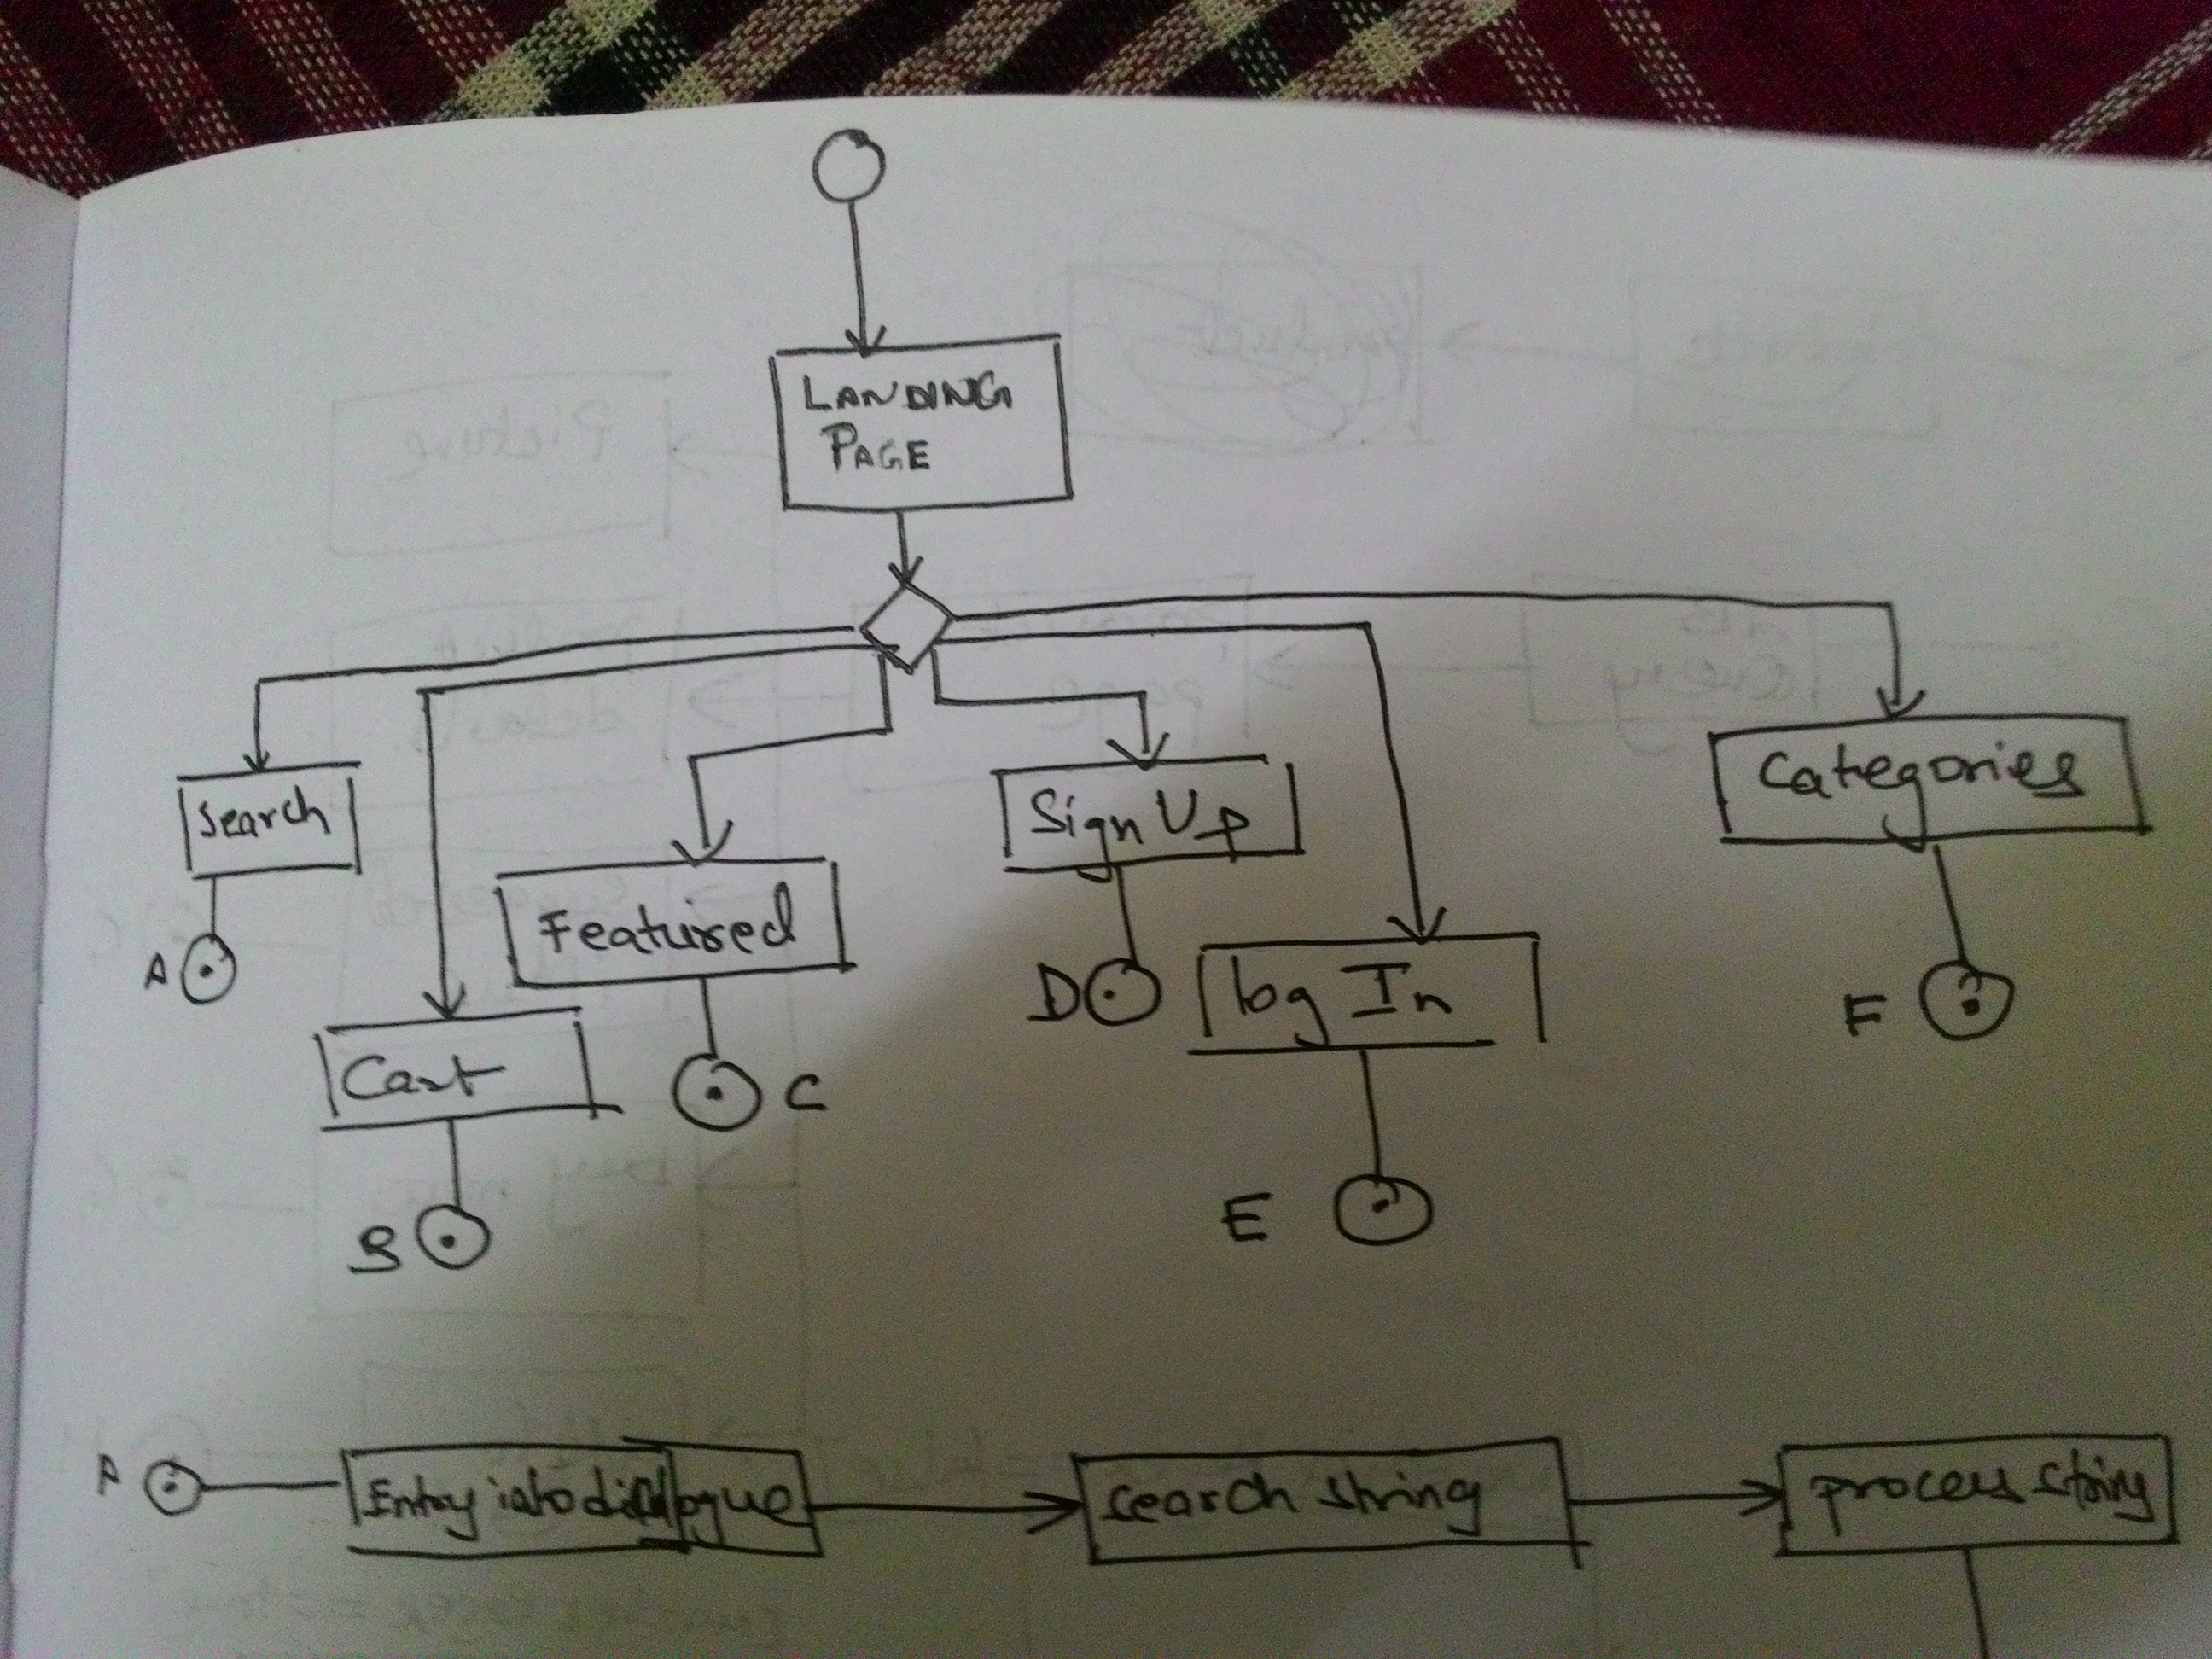 LANDING
PAGE
Search
Cart
Featured
Sign Up
log In
Categories
A
B
C
D
E
F
A
Entry into dialogue
search string
process string